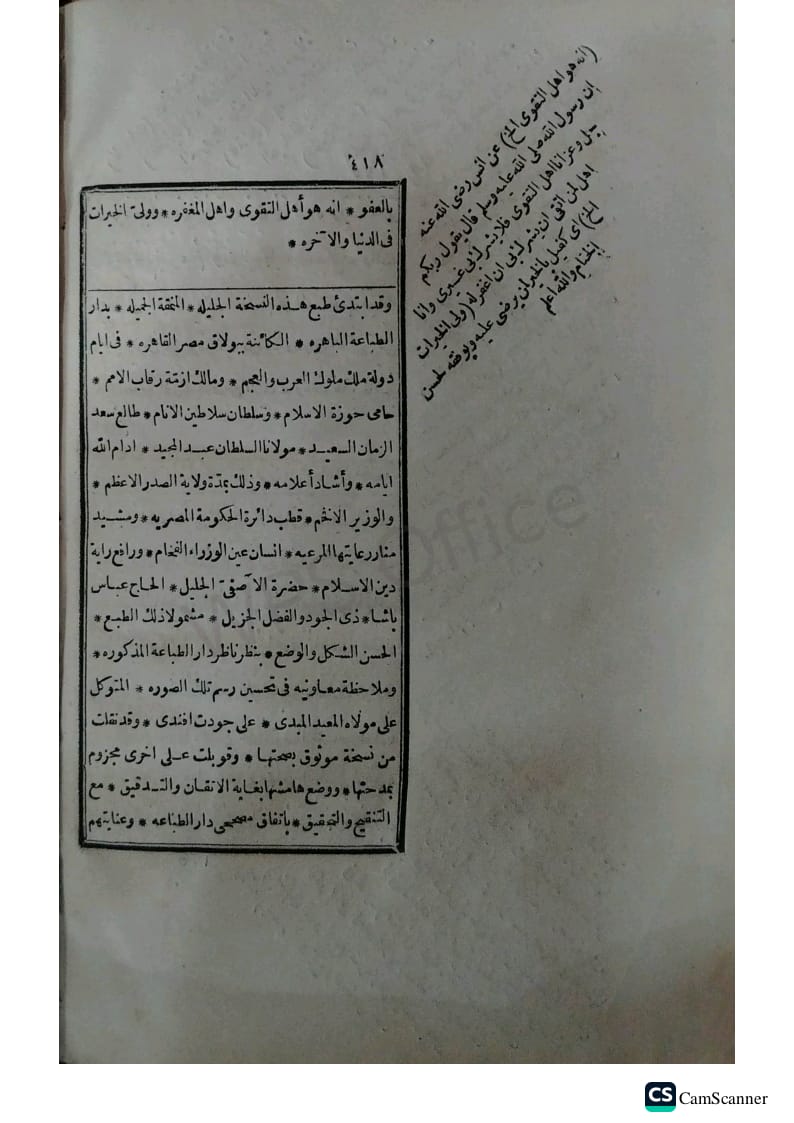 ٤١٨
بالعفو * انه هو أهل التقوى واهل المغفره * وولى الخيرات
فى الدنيا والآخره *
وقد ابتدئ طبع هذه النسخة الجليله * المنمقة الجميله * بدار
الطباعة الباهره * الكائنة ببولاق مصر القاهره * فى ايام
دولة ملك ملوك العرب والعجم * ومالك ازمّة رقاب الامم *
حامى حوزة الاسلام * وسلطان سلاطين الانام * طالع سعد
الزمان السعيد * مولانا السلطان عبد المجيد * ادام الله
ايامه * وأشاد أعلامه * وذلك بمدّة ولاية الصدر الاعظم *
والوزير الافخم * قطب دائرة الحكومة المصريه * ومشيد
منار رعايتها المرعيه * انسان عين الوزراء الفخام * ورافع راية
دين الاسلام * حضرة الآصفىّ الجليل * الحاج عباس
باشا * ذى الجود والفضل الجزيل * مشمولا ذلك الطبع *
الحسن الشكل والوضع * بنظر ناظر دار الطباعة المذكوره *
وملاحظة معاونيه فى تحسين رسم تلك الصوره * المتوكل
على مولاه المعيد المبدى * على جودت افندى * وقد نقلت
من نسخة موثوق بصحتها * وقوبلت على اخرى مجزوم
بمدحتها * ووضع هامشها بغاية الاتقان والتدقيق * مع
التنقيح والتحقيق * باتفاق مصححى دار الطباعه * وعنايتهم
(انه هو اهل التقوى الخ) عن انس رضى الله عنه
ان رسول الله صلى الله عليه وسلم قال يقول ربكم
جل وعز انا اهل التقوى فلا يشرك بى غيرى وانا
اهل لمن اتقى ان يشرك بى ان اغفر له (ولى الخيرات
الخ) اى كفيل بالخيران يرضى عليه ويوفقه لحسن
الختام والله اعلم
Office
CS CamScanner